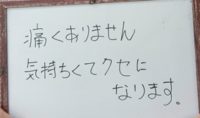 痛くありません
気持ちくてクセに
なります。